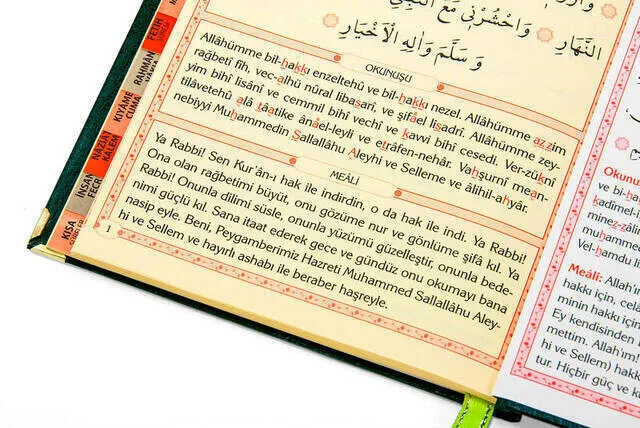 النَّهَارِ وَاحْشُرْنِي مَعَ النَّبِيِّ
وَ سَلَّمَ وَاٰلِهِ الْاَخْيَارِ
OKUNUŞU
Allâhümme bil-hakkı enzeltehû ve bil-hakkı nezel. Allâhümme azzim
rağbetî fîh, vec-alhü nûral libasarî, ve şifâel lisadrî. Allâhümme zey-
yim bihî lisânî ve cemmil bihî vechî ve kavvi bihî cesedî. Ver-zúknî
tilâvetehû alâ tâatike ânâel-leyli ve etrâfen-nehâr. Vahşurnî mean-
nebiyyi Muhammedîn Sallallâhu Aleyhi ve Selleme ve âlihil-ahyâr.
MEÂLİ
Ya Rabbi! Sen Kur'ân-ı hak ile indirdin, o da hak ile indi. Ya Rabbi!
Ona olan rağbetimi büyüt, onu gözüme nur ve gönlüme şifâ kıl. Ya
Rabbi! Onunla dilimi süsle, onunla yüzümü güzelleştir, onunla bede-
nimi güçlü kıl. Sana itaat ederek gece ve gündüz onu okumayı bana
nasip eyle. Beni, Peygamberimiz Hazreti Muhammed Sallallâhu Aley-
hi ve Sellem ve hayırlı ashabı ile beraber haşreyle.
1
FETİH
RAHMÂN
KIYÂME
CUMA
NAZİAT
KALEM
İNSAN
FECR
KISA
Okunu
ve bi-ha
kadimel
minez-zâ
muhamm
Vel-hamdu li
Meâli: Allah'ı
hakkı için, cela
minin hakkı için
Ey kendisinden
mettim. Allah'ım!
hi ve Sellem) hakk
tur. Hiçbir güç ve k